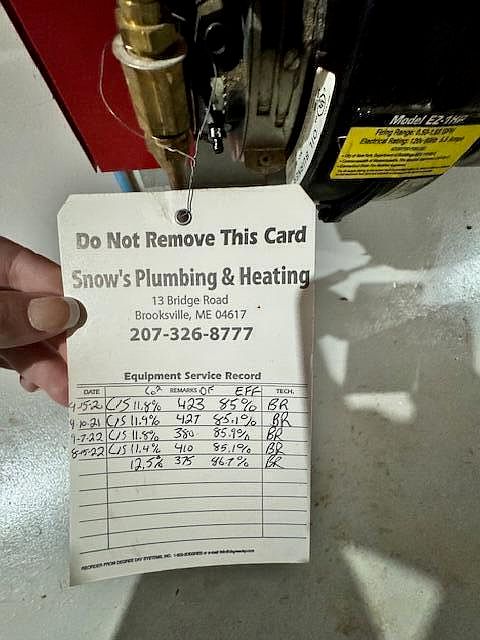 Model EZ-1HP
Do Not Remove This Card
Snow's Plumbing & Heating
13 Bridge Road
Brooksville, ME 04617
207-326-8777
Equipment Service Record
DATE CO2 REMARKS OF EFF TECH.
C/S 11.8% 423 85% BR
C/S 11.9% 427 85.1% BR
C/S 11.8% 380 85.9% BR
C/S 11.4% 410 85.1% BR
12.5% 375 86.7% BR